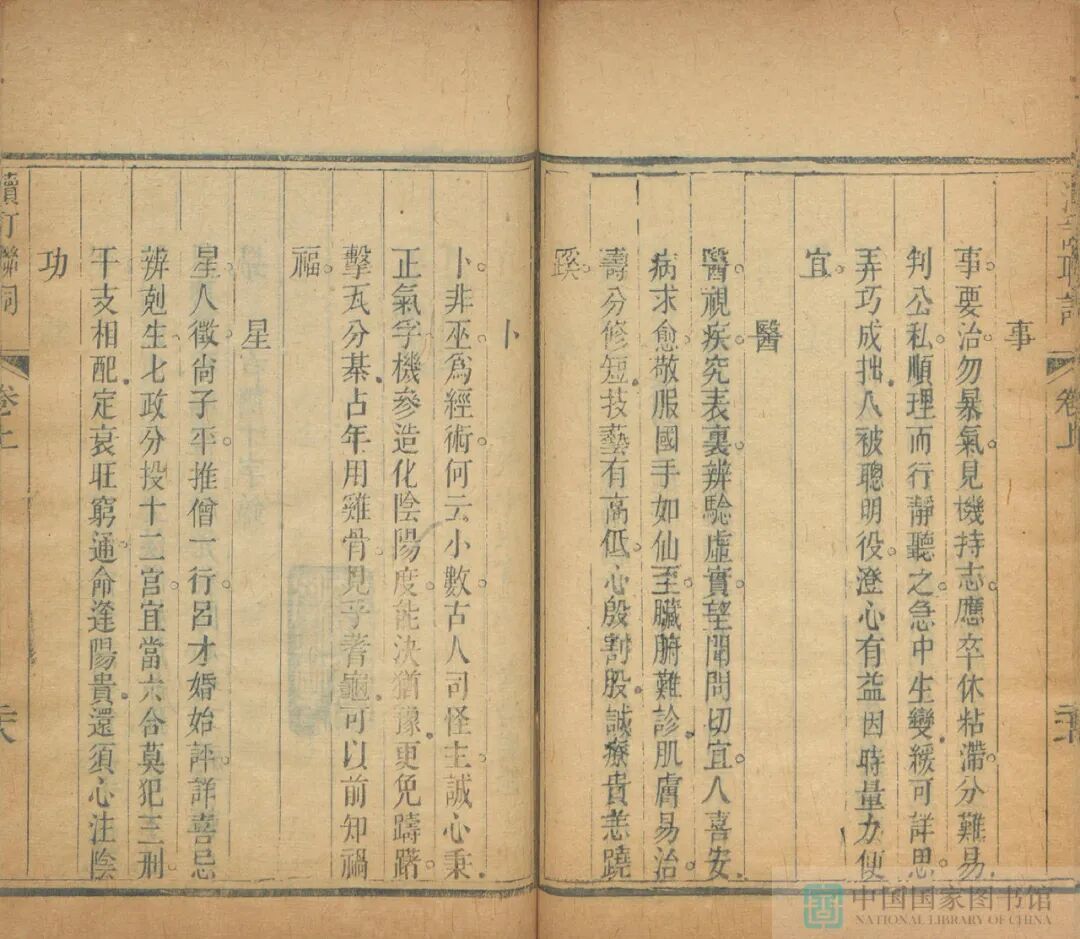 事
事要治勿暴氣見機持志應卒休粘滯分難易
判公私順理而行靜聽之急中生變緩可詳思
弄巧成拙人被聰明役澄心有益因時量力便
宜
醫
醫視疾究表裏辨驗虛實望聞問切宜人喜安
病求愈敬服國手如仙至臟腑難診肌膚易治
壽分修短技藝有高低心殷割股誠療貴恙蹺
蹊
卜
卜非巫為經術何云小數古人司怪主誠心秉
正氣孚機參造化陰陽度能決猶豫更免躊躇
擊瓦分棊占年用雞骨見乎蓍龜可以前知禍
福
星
星人徵尚子平推僧一行呂才婚始評詳喜忌
辨剋生七政分投十二宮宜當六合莫犯三刑
干支相配定衰旺窮通命逢陽貴還須心注陰
功
續訂聯詞
卷上
二六
中国国家图书馆
NATIONAL LIBRARY OF CHINA